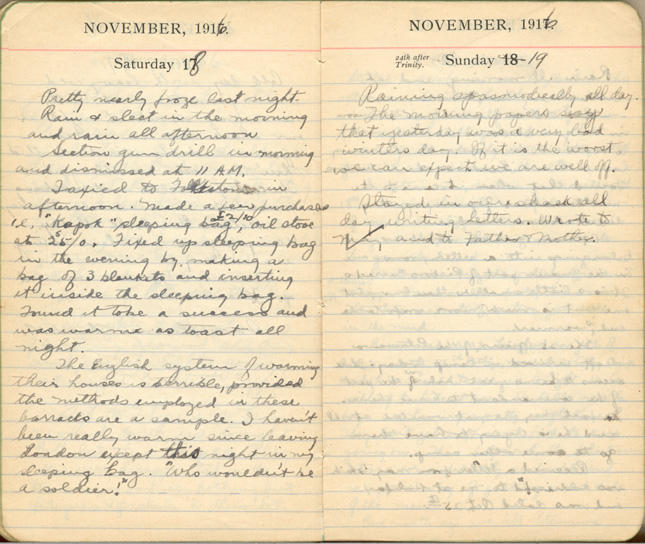 NOVEMBER, 1916.
Saturday 18
Pretty nearly froze last night.
Rain & sleet in the morning
and rain all afternoon
Section gun drill in morning
and dismissed at 11 A.M.
Taxied to Folkestone in
afternoon. Made a few purchases
i.e, "Kapok" sleeping bag, £2/10 oil stove
at 25/0. Fixed up sleeping bag
in the evening by, making a
bag of 3 blankets and inserting
it inside the sleeping bag.
Found it to be a success and
was warm as toast all
night.
The English system of warming
their houses is horrible, provided
the methods employed in these
barracks are a sample. I haven't
been really warm since leaving
London except this night in my
sleeping bag. "Who wouldn't be
a soldier!"
NOVEMBER, 1916.
24th after
Trinity.
Sunday 18 - 19
Raining spasmodically all day.
The morning papers say
that yesterday was a very bad
winters day. If it is the worst
we can expect we are well off.
Stayed in our shack all
day writing letters. Wrote to
and to Father & Mother.